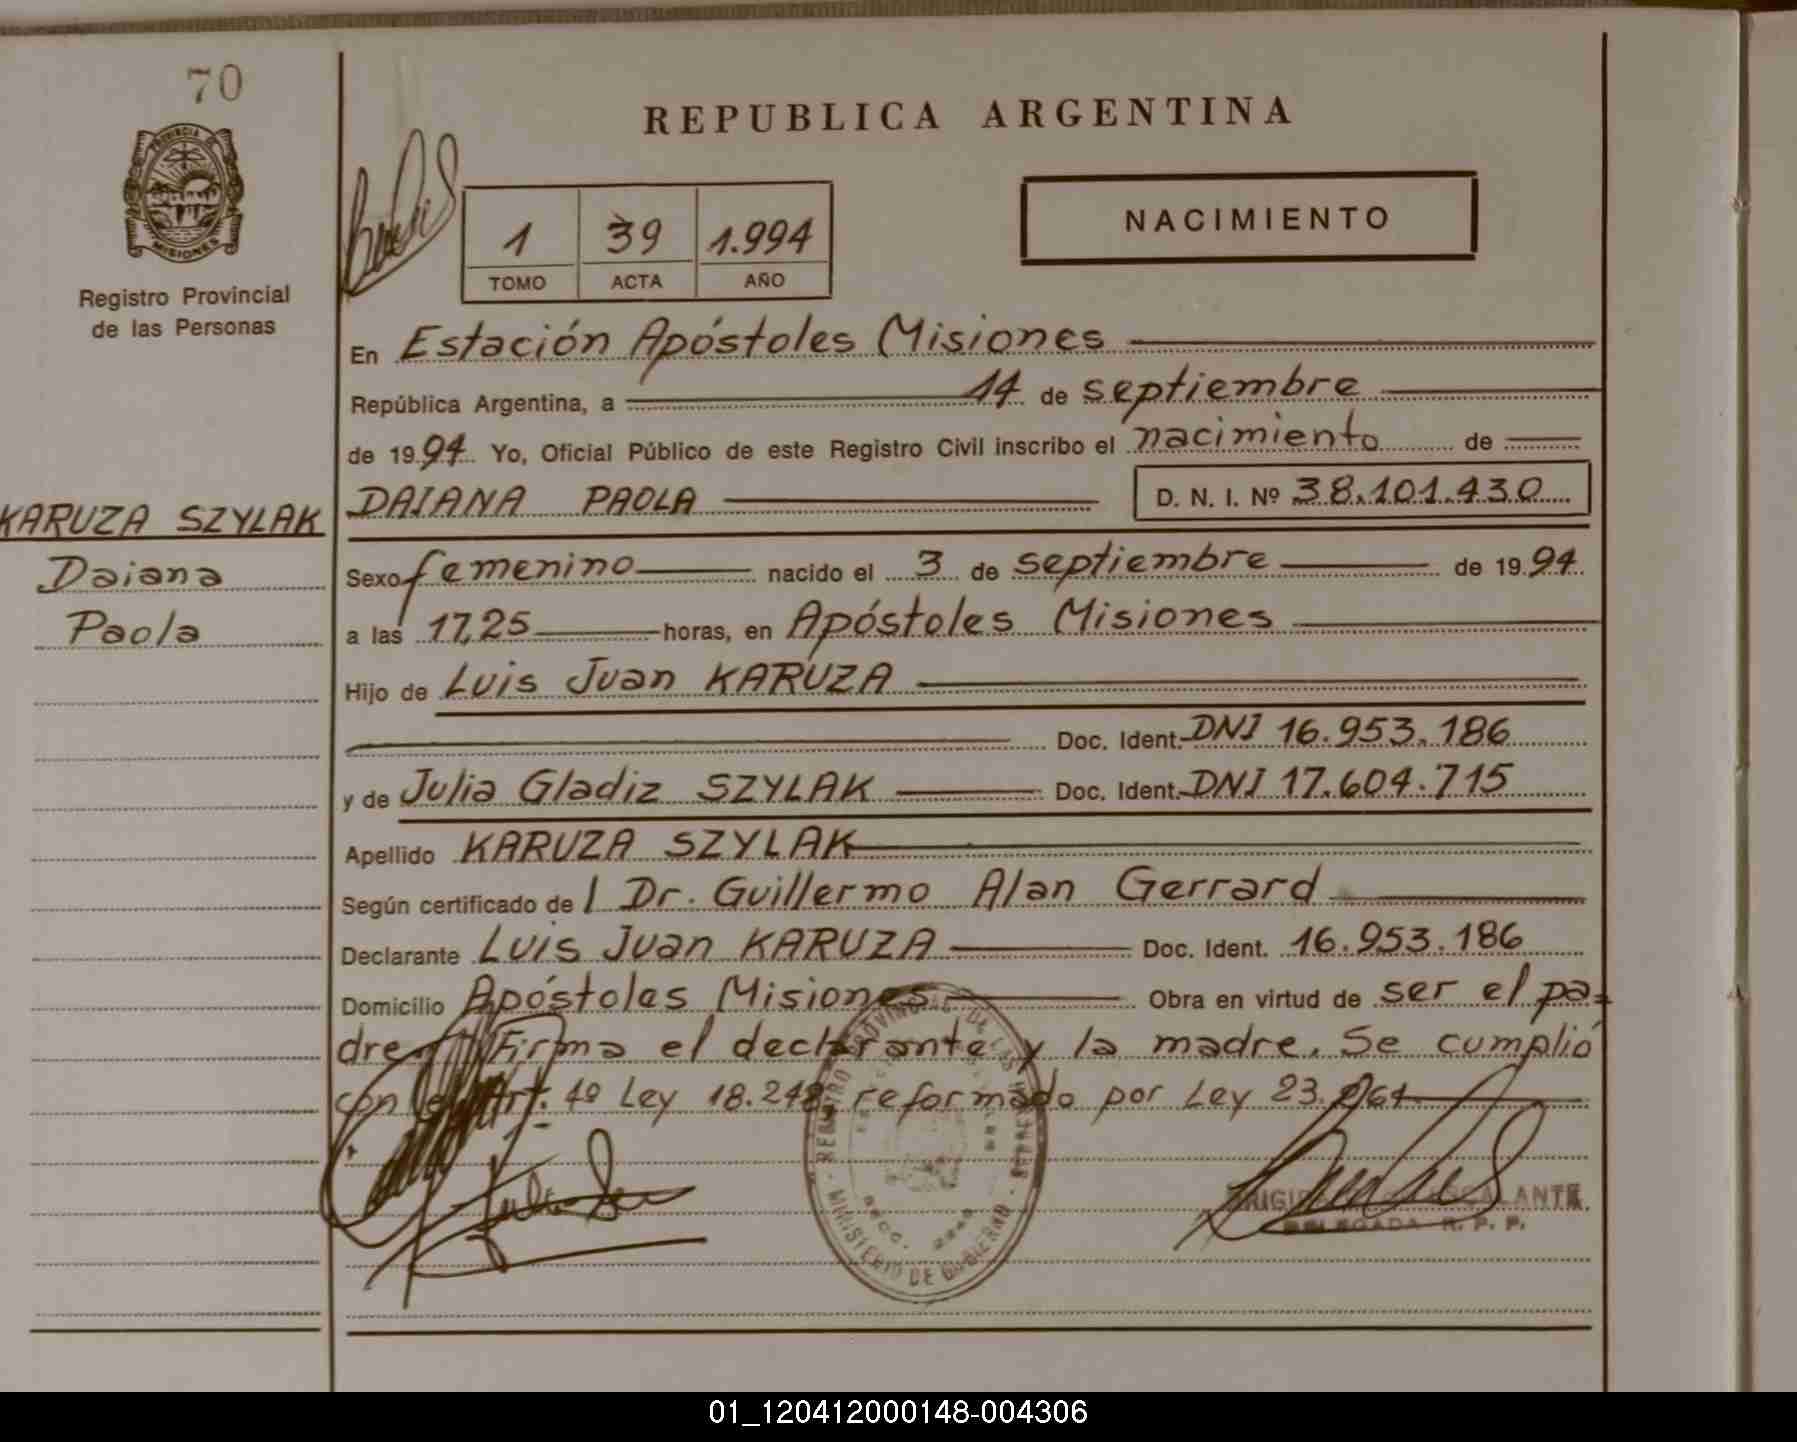 70
PROVINCIA DE
MISIONES
Registro Provincial
de las Personas
KARUZA SZYLAK
Daiana
Paola
REPUBLICA ARGENTINA
1 39 1.994
TOMO ACTA AÑO
NACIMIENTO
En Estación Apóstoles Misiones
República Argentina, a 14 de septiembre
de 1994 Yo, Oficial Público de este Registro Civil inscribo el nacimiento de
DAIANA PAOLA D. N. I. Nº 38.101.430
Sexo femenino nacido el 3 de septiembre de 1994
a las 17,25 horas, en Apóstoles Misiones
Hijo de Luis Juan KARUZA
Doc. Ident. DNI 16.953.186
y de Julia Gladiz SZYLAK Doc. Ident. DNI 17.604.715
Apellido KARUZA SZYLAK
Según certificado del Dr. Guillermo Alan Gerrard
Declarante Luis Juan KARUZA Doc. Ident. 16.953.186
Domicilio Apóstoles Misiones Obra en virtud de ser el pa=
dre Firma el declarante y la madre. Se cumplió
con el Art. 4º Ley 18.248, reformado por Ley 23.264
REGISTRO PROVINCIAL DE LAS PERSONAS
MINISTERIO DE GOBIERNO
ESCALANTE
DELEGADA R. P. P.
01_120412000148-004306